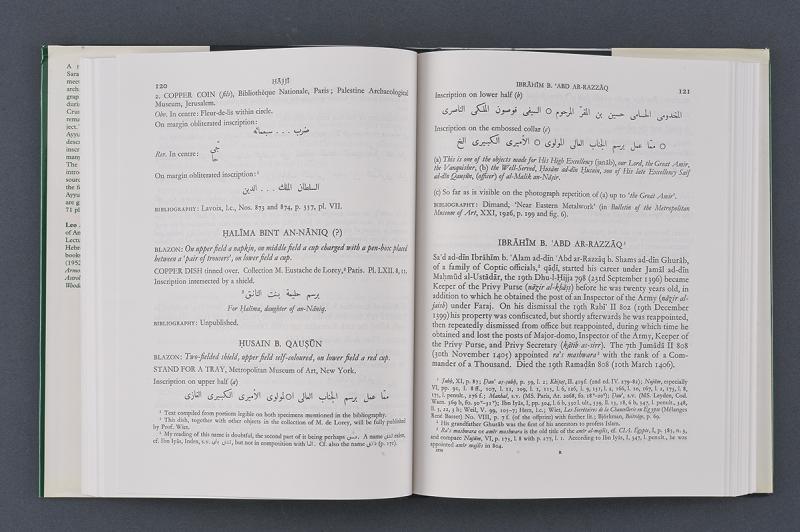 A
Sara
meet
arch
grap
durin
Crus
rema
ject.'
Ayyu
descr
inscr
many
The
introd
sourc
the f
Ayyu
are g
71 pl
Leo
of An
Lectu
Hebr
books
(1952
Armo
Astrol
Woodc
120
ḤĀJJĪ
2. COPPER COIN (fils), Bibliothèque Nationale, Paris; Palestine Archaeological
Museum, Jerusalem.
Obv. In centre: Fleur-de-lis within circle.
On margin obliterated inscription:
ضرب . . .
Rev. In centre:
حا
جى
On margin obliterated inscription:¹
السلطان الملك . . . الدين
BIBLIOGRAPHY: Lavoix, l.c., Nos. 873 and 874, p. 357, pl. VII.
ḤALĪMA BINT AN-NĀNIQ (?)
BLAZON: On upper field a napkin, on middle field a cup charged with a pen-box placed
between a 'pair of trousers', on lower field a cup.
COPPER DISH tinned over. Collection M. Eustache de Lorey,² Paris. Pl. LXII, 8, 11.
Inscription intersected by a shield.
برسم حليمة بنت النانق³
For Ḥalīma, daughter of an-Nāniq.
BIBLIOGRAPHY: Unpublished.
ḤUSAIN B. QAUṢŪN
BLAZON: Two-fielded shield, upper field self-coloured, on lower field a red cup.
STAND FOR A TRAY, Metropolitan Museum of Art, New York.
Inscription on upper half (a)
ممّا عمل برسم الجناب العالى المولوى الأميرى الكبيرى الغازى
¹ Text compiled from portions legible on both specimens mentioned in the bibliography.
² This dish, together with other objects in the collection of M. de Lorey, will be fully published
by Prof. Wiet.
³ My reading of this name is doubtful, the second part of it being perhaps A name exist,
cf. Ibn Iyās, Index, s.v. but not in composition with Cf. also the name (p. 171).
IBRĀHĪM B. 'ABD AR-RAZZĀQ
121
Inscription on lower half (b)
المخدومى الحسامى حسين بن المقرّ المرحوم ○ السيفى قوصون الملكى الناصرى
Inscription on the embossed collar (c)
○ ممّا عمل برسم الجناب العالى المولوى ○ الأميرى الكبيرى الخ
(a) This is one of the objects made for His High Excellency (janāb), our Lord, the Great Amir,
the Vanquisher, (b) the Well-Served, Ḥusām ad-dīn Ḥusain, son of His late Excellency Saif
al-dīn Qauṣūn, (officer) of al-Malik an-Nāṣir.
(c) So far as is visible on the photograph repetition of (a) up to 'the Great Amīr'.
BIBLIOGRAPHY: Dimand, 'Near Eastern Metalwork' (in Bulletin of the Metropolitan
Museum of Art, XXI, 1926, p. 199 and fig. 6).
IBRĀHĪM B. 'ABD AR-RAZZĀQ¹
Sa'd ad-dīn Ibrāhīm b. 'Alam ad-dīn 'Abd ar-Razzāq b. Shams ad-dīn Ghurāb,
of a family of Coptic officials,² qāḍī, started his career under Jamāl ad-dīn
Maḥmūd al-Ustādār, the 19th Dhu-l-Ḥijja 798 (23rd September 1396) became
Keeper of the Privy Purse (nāẓir al-khāṣṣ) before he was twenty years old, in
addition to which he obtained the post of an Inspector of the Army (nāẓir al-
jaish) under Faraj. On his dismissal the 19th Rabī' II 802 (19th December
1399) his property was confiscated, but shortly afterwards he was reappointed,
then repeatedly dismissed from office but reappointed, during which time he
obtained and lost the posts of Major-domo, Inspector of the Army, Keeper of
the Privy Purse, and Privy Secretary (kātib as-sirr). The 7th Jumādā II 808
(30th November 1405) appointed ra's mashwara³ with the rank of a Com-
mander of a Thousand. Died the 19th Ramaḍān 808 (10th March 1406).
¹ p. 87; Ḍau' aṣ-ṣubḥ, p. 59, l. 2; Khiṭaṭ, II, (2nd ed. IV, 279-82); Nujūm, especially
VI,
175, l. penult., 276 f.; Manhal, s.v. (MS. Paris, Ar. 2068, Ḍau', s.v. (MS. Leyden, Cod.
Warn. Ibn Iyās, I,
Weil, V, 99, 105-7; Herz, l.c.; Wiet, Les Secrétaires de la Chancellerie en Égypte (Mélanges
René Basset) No. VIII, p. 7 f. (of the offprint) with further lit.; Björkman, Beiträge, p. 69.
² His grandfather Ghurāb was the first of his ancestors to profess Islam.
³ Ra's mashwara or amīr mashwara is the old title of the amīr al-majlis, cf. CIA. Égypte, I, p. 385, n. 3,
and compare Nujūm, VI, p. 175, l. 8 with p. 277, l. 1. According to Ibn Iyās, I, 347, l. penult., he was
appointed amīr majlis in 804.
R